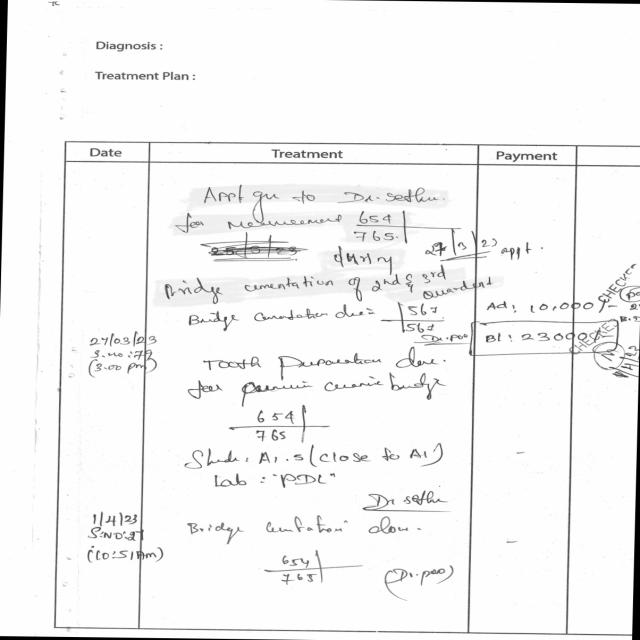 Diagnosis :
Treatment Plan :
Date Treatment Payment
Appt to Dr. sethu
for 654
765
27/3/23 appt.
Bridge cementation of 2nd & 3rd Quardent
Bridge cementation due= 567 Ad: 10,000/-
567
27/03/23 Dr. poo Bl: 23000
S.no: 79
(3.00 pm) Tooth Preparation done.
for ceramic bridge
654
765
Shade: A1.5 (close to A1)
Lab : "PDL"
Dr sethu
1/4/23
S.NO:27 Bridge done.
(10:51AM)
654
765 (Dr. poo)